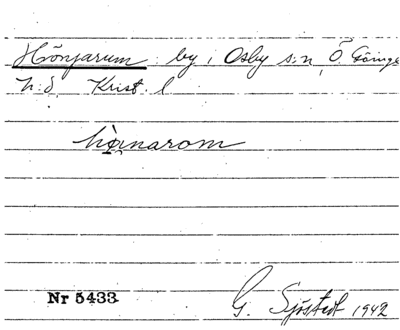 Hönjarum by, Osby s:n, Ö. Göinge
h:d, Krist. l
Nr 5433
G. Sjöstedt 1942